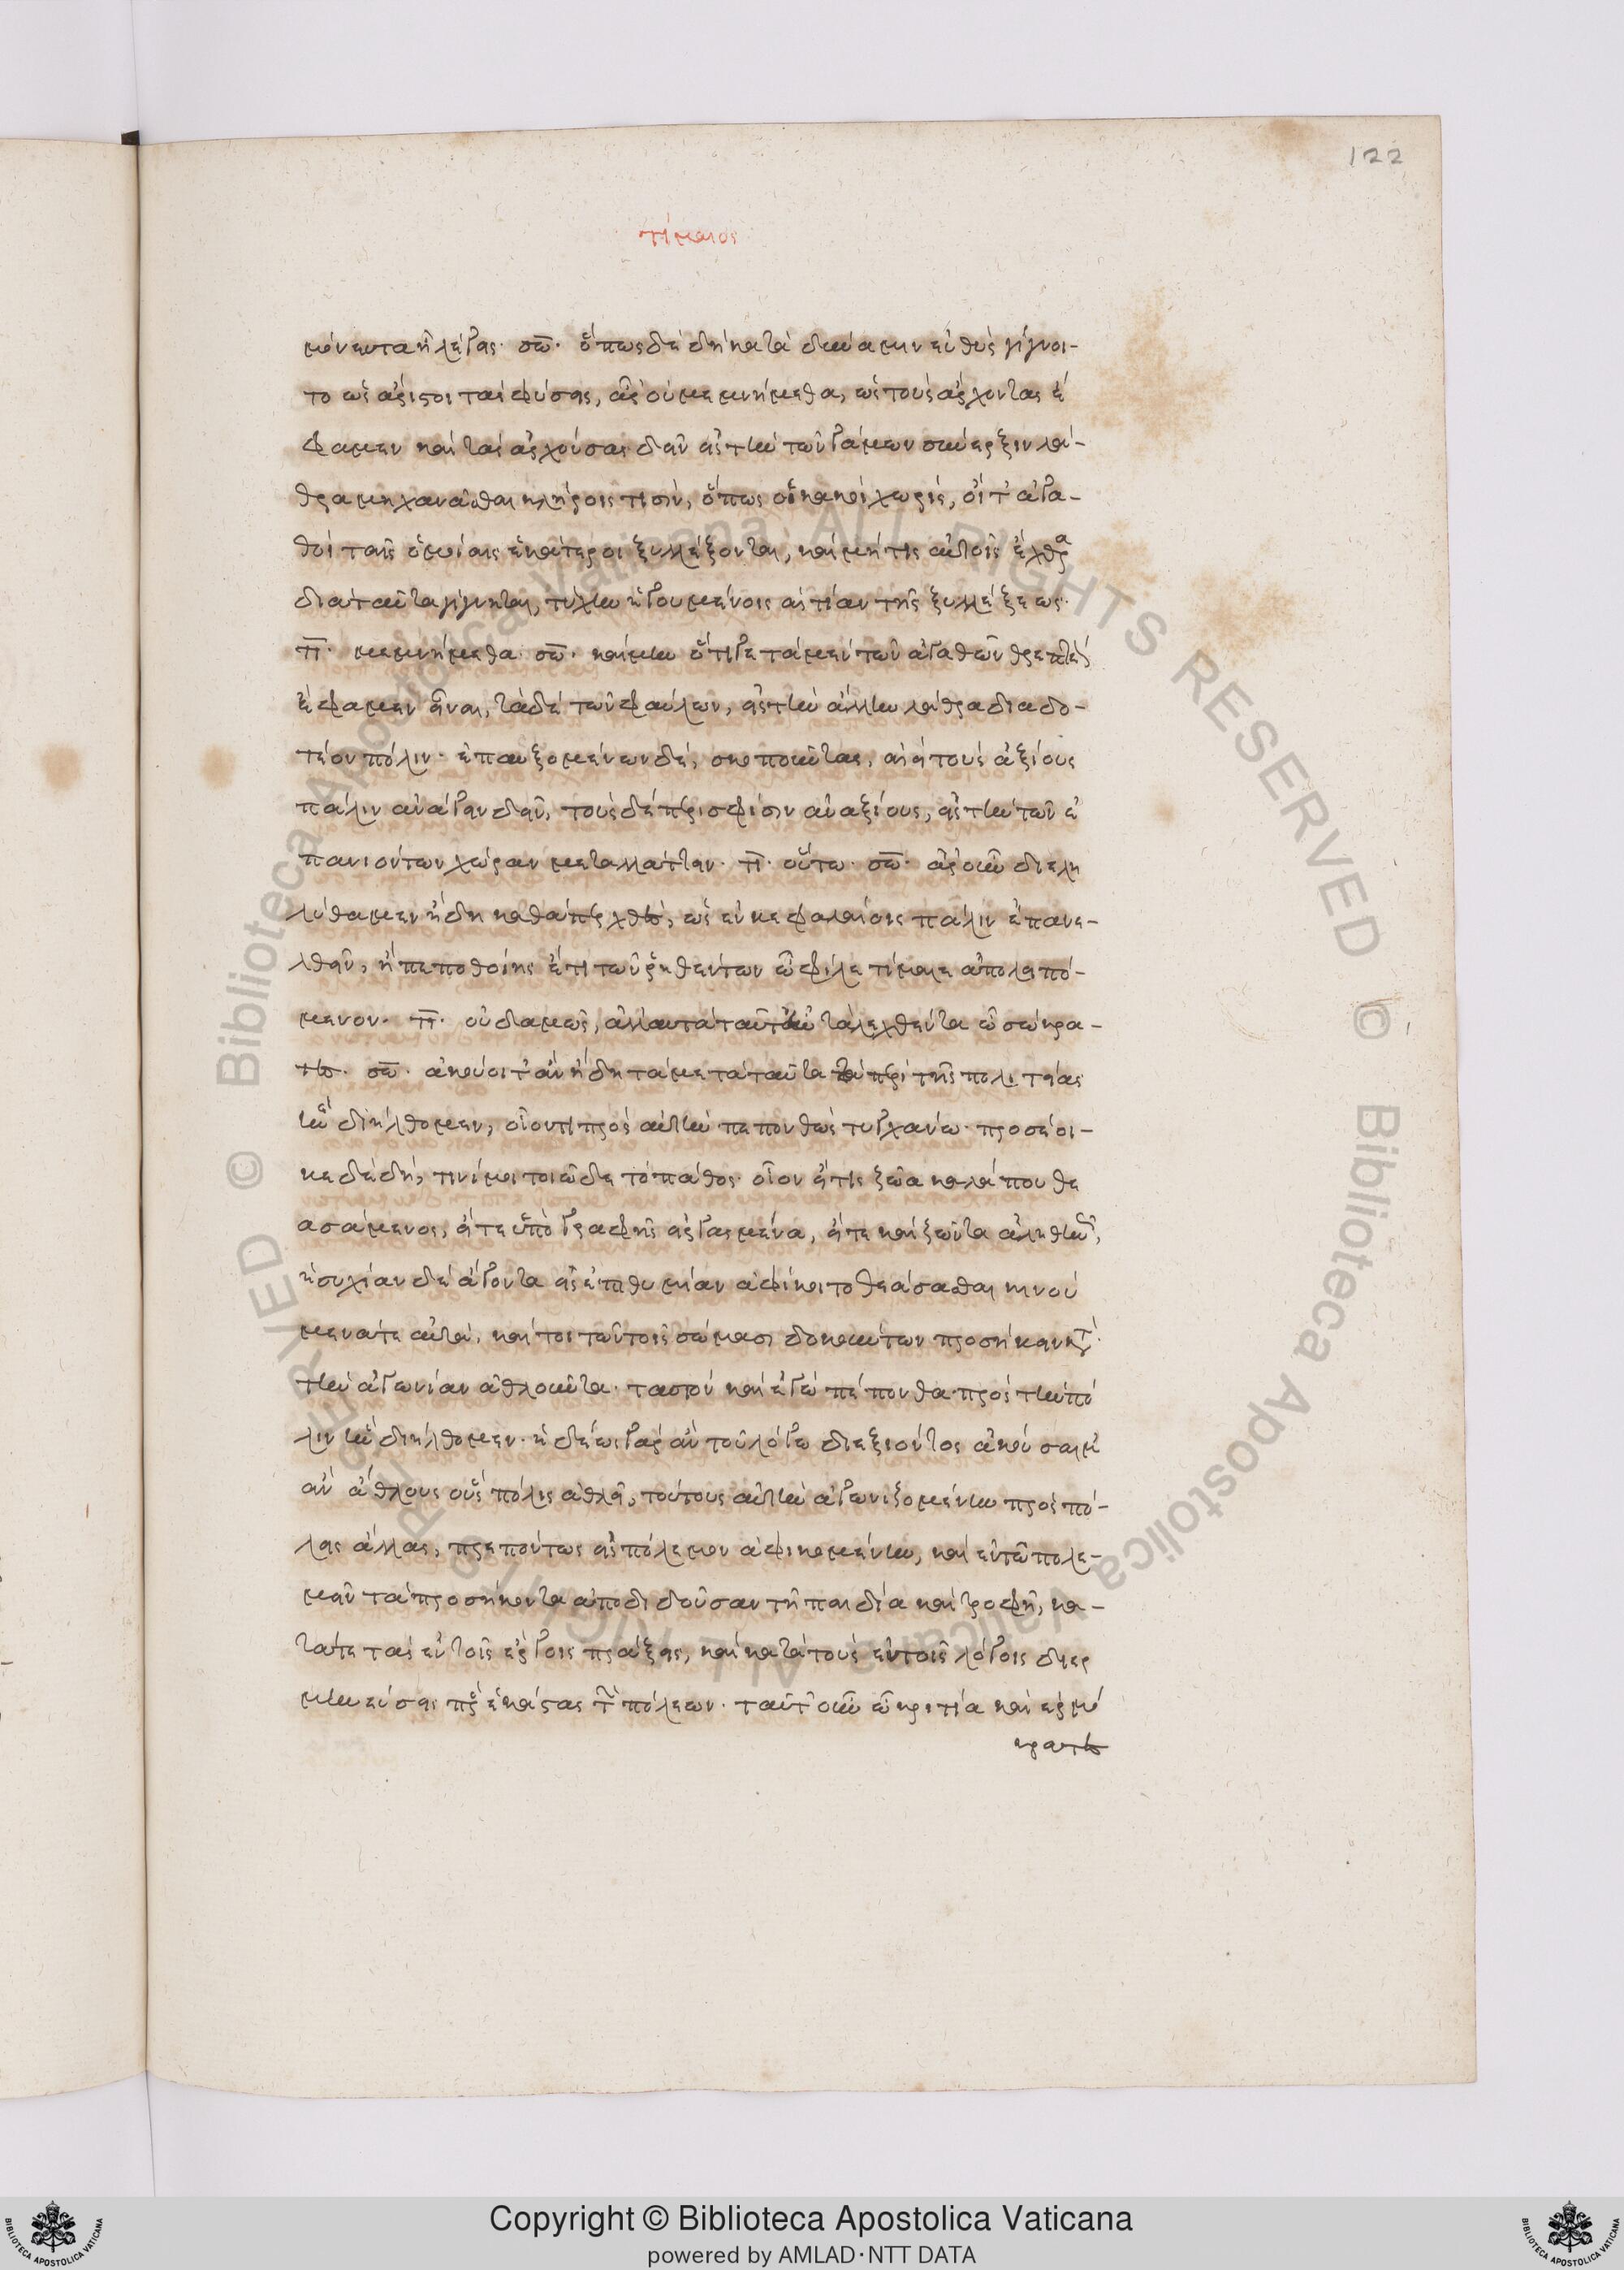 122
τίμαιος
μόνευτα ἢ λέγεις. σω. ὅπως δὲ δὴ κατὰ δύναμιν εὐθὺς γίγνοι-
το ὡς ἄριστοι τὰς φύσεις, ἆρ' οὐ μεμνήμεθα, ὡς τοὺς ἄρχοντας ἔ
φαμεν καὶ τὰς ἀρχούσας δεῖν εἰς τὴν τῶν γάμων σύνερξιν λά-
θρα μηχανᾶσθαι κλήροις τισίν, ὅπως οἱ κακοὶ χωρὶς, οἵ τ' ἀγα-
θοὶ ταῖς ὁμοίαις ἑκάτεροι ξυλλέξονται, καὶ μή τις αὐτοῖς ἔχθρα
διὰ ταῦτα γίγνηται, τύχην ἡγουμένοις αἰτίαν τῆς ξυλλέξεως.
τι. μεμνήμεθα. σω. καὶ μὴν ὅτι γε τὰ μὲν τῶν ἀγαθῶν θρεπτέον
ἔφαμεν εἶναι, τὰ δὲ τῶν φαύλων, εἰς τὴν ἄλλην λάθρα διαδο-
τέον πόλιν. ἐπαυξομένων δὲ, σκοποῦντας, ἀεὶ τοὺς ἀξίους
πάλιν ἀνάγειν δεῖν, τοὺς δὲ παρὰ σφίσιν ἀναξίους, εἰς τὴν τῶν ἐ
πανιόντων χώραν μεταλλάττειν. τι. οὕτω. σω. ἆρ' οὖν διελη
λύθαμεν ἤδη καθάπερ χθὲς, ὡς ἐν κεφαλαίοις πάλιν ἐπανε-
λθεῖν, ἢ ποθοῦμεν ἔτι τῶν ῥηθέντων ὦ φίλε τίμαιε ἀπολειπό-
μενον. τι. οὐδαμῶς, ἀλλὰ αὐτὰ ταῦτ' ἦν τὰ λεχθέντα ὦ σώκρα-
τες. σω. ἀκούοιτ' ἂν ἤδη τὰ μετὰ ταῦτα περὶ τῆς πολιτείας
ἣν διήλθομεν, οἷόν τι πρὸς αὐτὴν πεπονθὼς τυγχάνω. προσέοι-
κε δὲ δή, τινί μοι τοιῷδε τὸ πάθος. οἷον εἴ τις ζῶα καλά που θε
ασάμενος, εἴτε ὑπὸ γραφῆς εἰργασμένα, εἴτε καὶ ζῶντα ἀληθινῶς,
ἡσυχίαν δὲ ἄγοντα εἰς ἐπιθυμίαν ἀφίκοιτο θεάσασθαι κινού
μενά τε αὐτὰ, καί τι τῶν τοῖς σώμασι δοκούντων προσήκειν κατὰ
τὴν ἀγωνίαν ἀθλοῦντα. ταυτὸν καὶ ἐγὼ πέπονθα πρὸς τὴν πό
λιν ἣν διήλθομεν. ἡδέως γὰρ ἄν του λόγῳ διεξιόντος ἀκούσαιμ'
ἂν ἄθλους οὓς πόλις ἀθλεῖ, τούτους αὐτὴν ἀγωνιζομένην πρὸς πό-
λεις ἄλλας, πρεπόντως εἰς πόλεμον ἀφικομένην, καὶ ἐν τῷ πολε-
μεῖν τὰ προσήκοντα ἀποδιδοῦσαν τῇ παιδεία καὶ τροφῇ, κα-
τά τε τὰς ἐν τοῖς ἔργοις πράξεις, καὶ κατὰ τοὺς ἐν τοῖς λόγοις διερ
μηνεύσεις πρὸς ἑκάστας τῶν πόλεων. ταῦτ' οὖν ὦ κριτία καὶ ἑρμό
κρατες
Copyright © Biblioteca Apostolica Vaticana
powered by AMLAD·NTT DATA